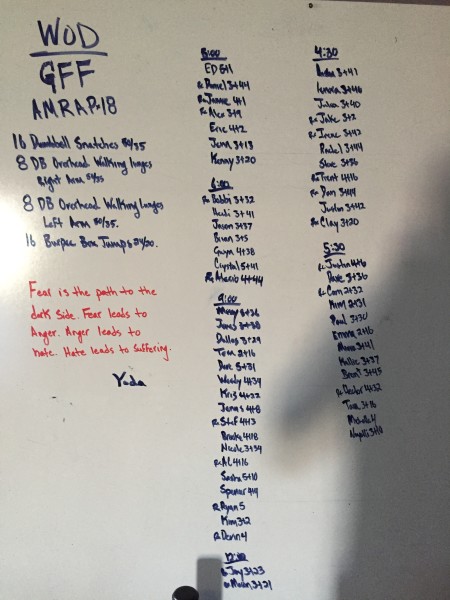 WOD
GFF
AMRAP-18
16 Dumbbell Snatches 50/35
8 DB Overhead Walking lunges
Right Arm 50/35
8 DB Overhead Walking Lunges
Left Arm 50/35.
16 Burpee Box Jumps 24/20.
Fear is the path to the
dark side. Fear leads to
Anger. Anger leads to
hate. Hate leads to suffering.
Yoda
ED 5+1
Rx Daniel 3+44
Rx Jannie 4+1
Rx Alex 3+9
Eric 4+2
Jenn 3+13
Kenny 3+20
6:00
Rx Bobbi 3+32
Heidi 3+41
Jason 3+37
Brian 3+5
Gwyn 4+38
Crystal 5+41
9:00
Jones 3+38
Dallas 3+29
Tom 2+16
Dave 5+31
Woody 4+34
Kris 4+22
Jenas 4+8
Rx Stef 4+13
Brooke 4+18
Nicole 3+34
Rx AL 4+16
Sasha 5+10
Spencer 4+9
Rx Ryan 5
Kim 3+2
Rx Donn 4
12:00
Jay 3+23
4:30
3+41
3+46
Julia 3+40
Rx Jake 3+2
Rx Irene 3+42
Rachel 3+44
Steve 3+36
Rx Trent 4+16
Rx Dan 3+44
Justin 3+42
Rx Clay 3+20
5:30
Rx Justin 4+6
Dave 3+36
Rx Cam 2+32
Kim 2+31
Paul 3+30
Emma 2+16
3+41
Kallie 3+37
3+45
Rx Hector 4+32
Tina 3+16
Michelle 4